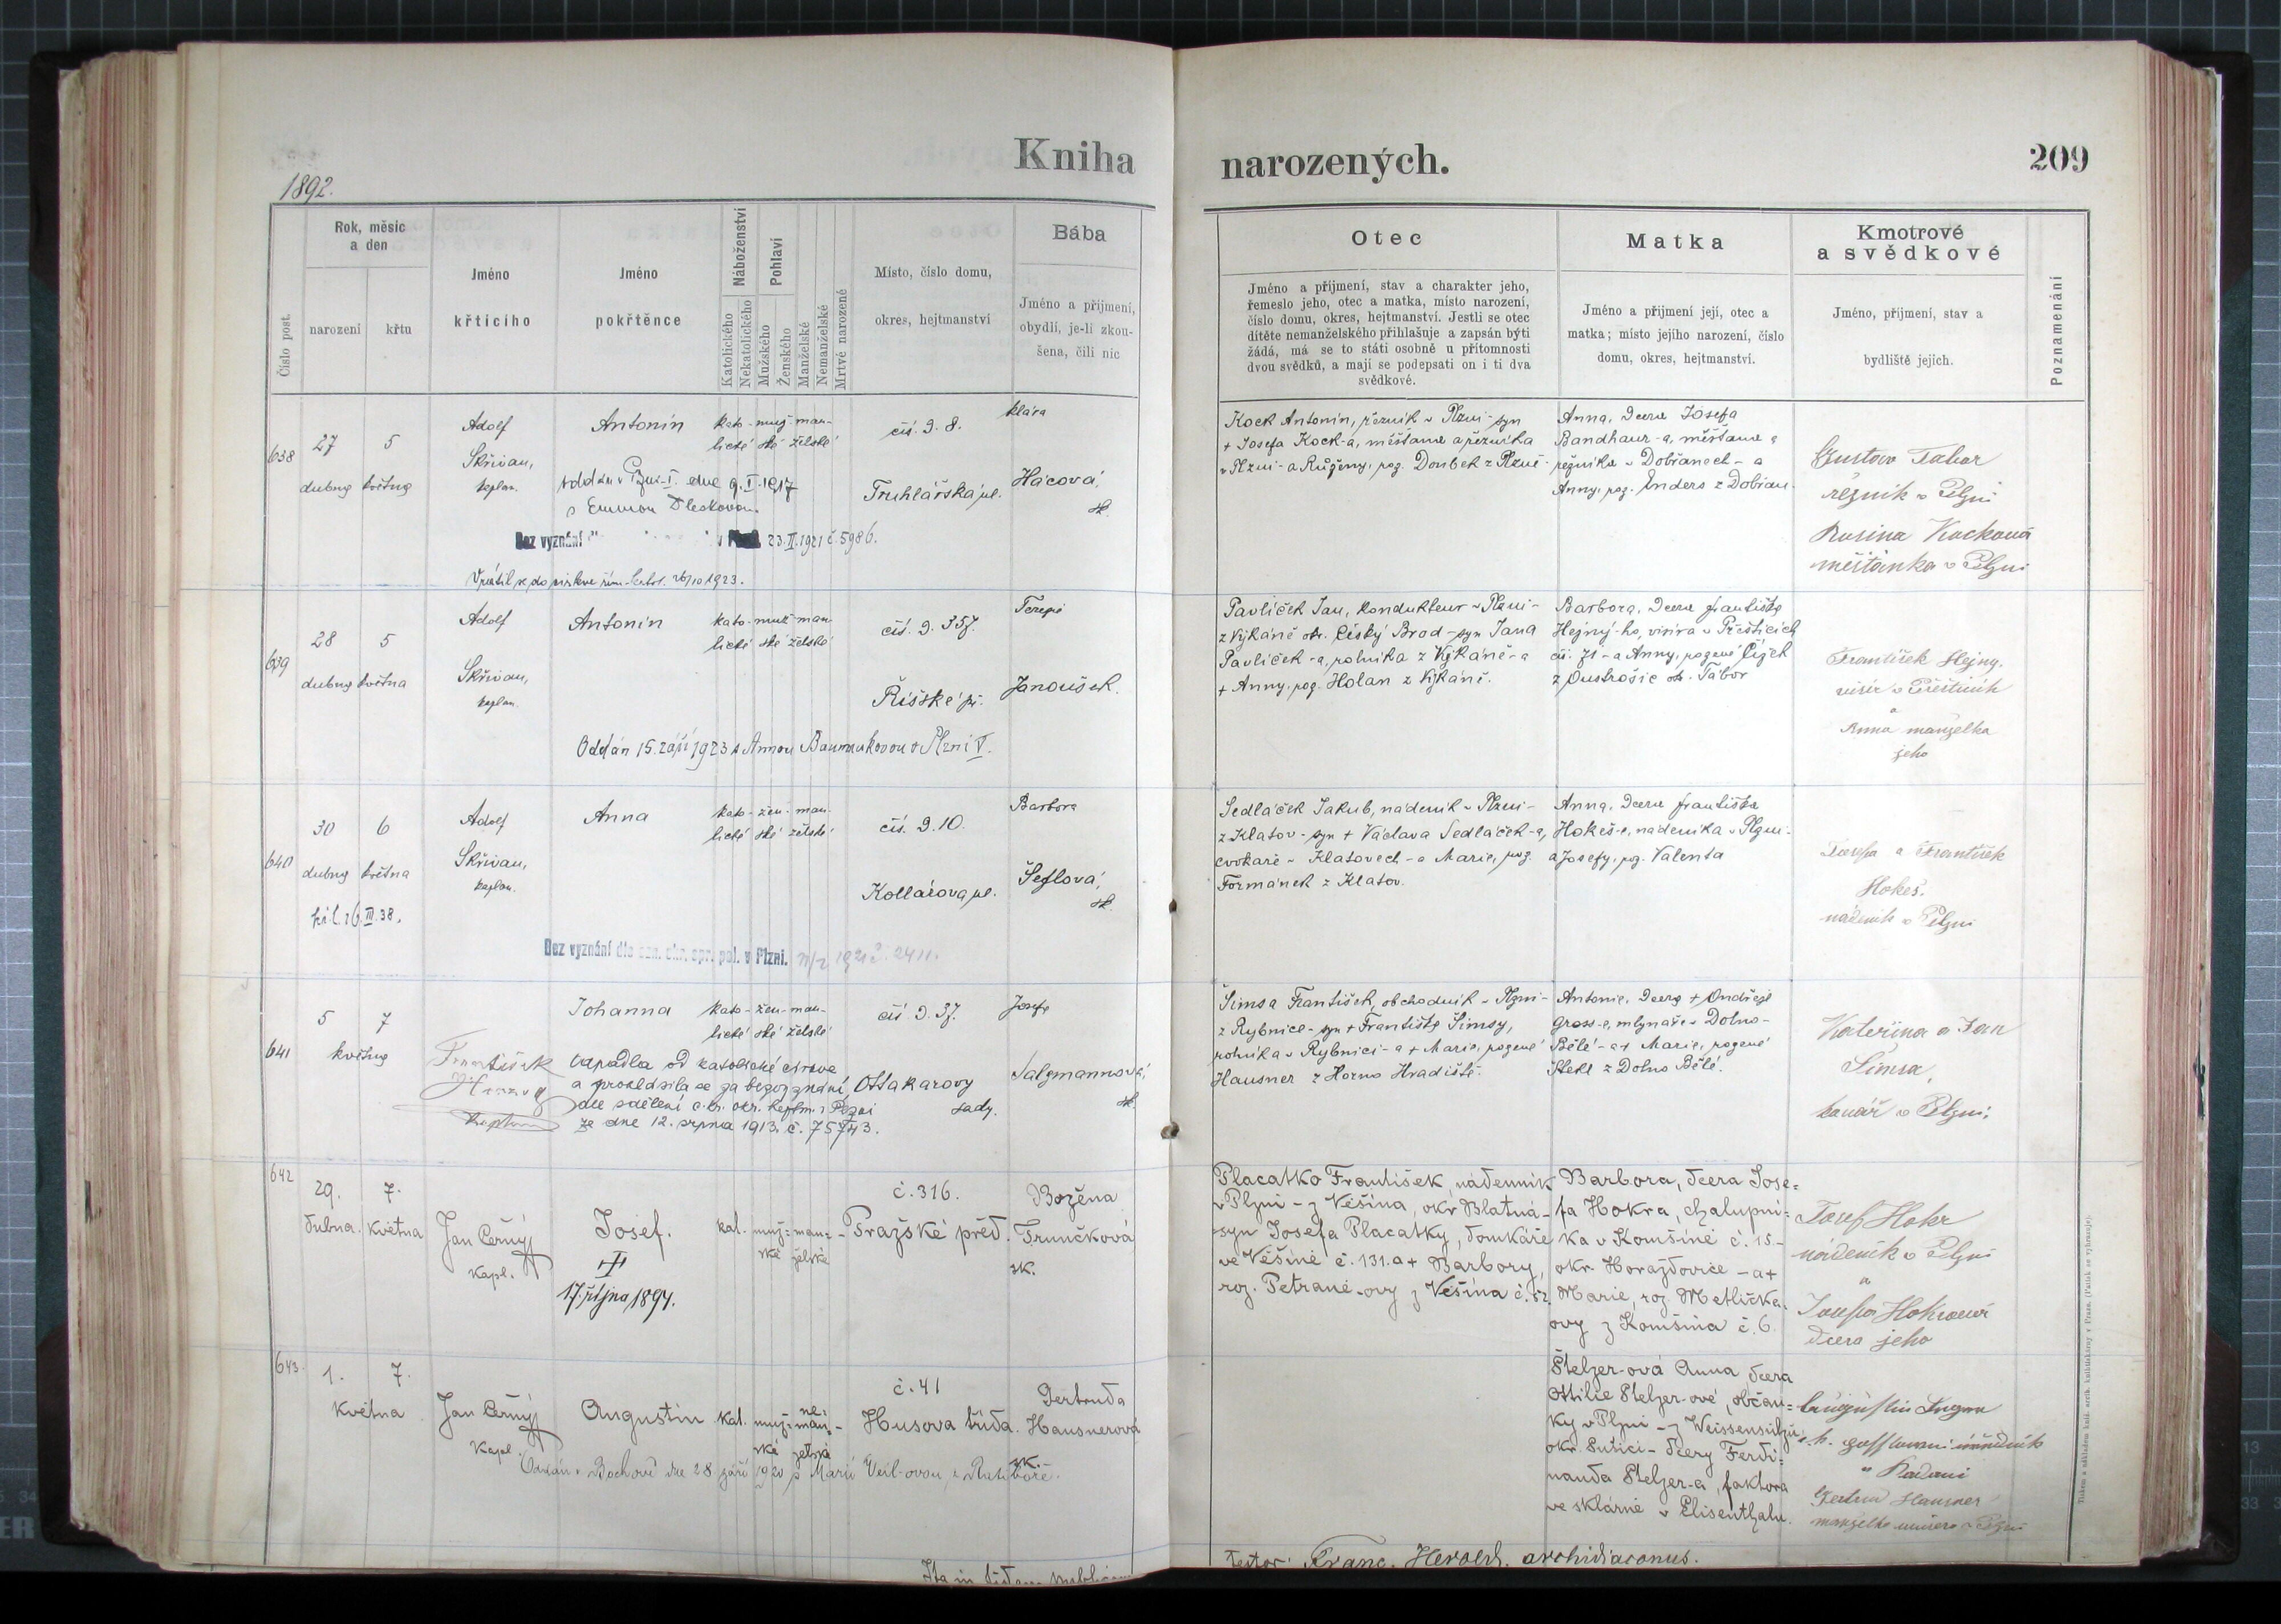 Kniha
narozených.
209
1892.
Číslo post.
Rok, měsíc
a den
narození
křtu
Jméno
křticího
Jméno
pokřtěnce
Náboženství
Katolického
Nekatolického
Pohlaví
Mužského
Ženského
Manželské
Nemanželské
Mrtvě narozené
Místo, číslo domu,
okres, hejtmanství
Bába
Jméno a příjmení,
obydlí, je-li zkou-
šena, čili nic
Otec
Jméno a příjmení, stav a charakter jeho,
řemeslo jeho, otec a matka, místo narození,
číslo domu, okres, hejtmanství. Jestli se otec
dítěte nemanželského přihlašuje a zapsán býti
žádá, má se to státi osobně u přítomnosti
dvou svědků, a mají se podepsati on i ti dva
svědkové.
Matka
Jméno a přijmení její, otec a
matka; místo jejího narození, číslo
domu, okres, hejtmanství.
Kmotrové
a svědkové
Jméno, příjmení, stav a
bydliště jejich.
Poznamenání
638
27
dubna
5
května
Adolf
Skřivan,
kaplan.
Antonín
oddán v Plzni I. dne 9.I.1917
s Emmou Dleskovou.
kato- muž- man-
lické ské želské
čís. d. 8.
Truhlářská ul.
Klára
Hácová,
zk.
Bez vyznání
23.II.1921 č. 5986.
Vrátil se do církve řím.-katol. 26/10 1923.
Kock Antonín, řezník v Plzni - syn
+ Josefa Kock-a, měšťana a řezníka
v Plzni - a Růženy, roz. Doubek z Plzně -
Anna, dcera Josefa
Bandhaur-a, měšťana a
řezníka v Dobřanech - a
Anny, roz. Enders z Dobřan.
Gustav Tabor
řezník v Plzni
Rosina Kocková
měštanka v Plzni
639
28
dubna
5
května
Adolf
Skřivan,
kaplan.
Antonín
kato- muž- man-
lické ské želské
čís. d. 357.
Říšské př.
Terezie
Janoušek.
Oddán 15. září 1923 s Annou Baumrukovou v Plzni V.
Pavlíček Jan, kondukteur v Plzni -
z Vykáně okr. Český Brod - syn Jana
Pavlíček-a, rolníka z Vykáně - a
+ Anny, roz. Holan z Vykáně.
Barbora, dcera Františka
Hejný-ho, visíra v Přešticích
čís. 71 - a Anny, rozené Čížek
z Oustrašic ok. Tábor
František Hejny.
visír v Přešticích
a
Anna manželka
jeho
640
30
dubna
6
května
Adolf
Skřivan,
kaplan.
Anna
kato- žen- man-
lické ské želské
čís. d. 10.
Kollárova ul.
Barbora
Šeflová,
zk.
kř. l. 16.III.38.
Bez vyznání dle ozn. okr. spr. pol. v Plzni.
1921 č. 2411.
Sedláček Jakub, nádeník v Plzni -
z Klatov - syn + Václava Sedláček-a,
cvokaře v Klatovech - a Marie, roz.
Formánek z Klatov.
Anna, dcera Františka
Hokeš-e, nádeníka v Plzni -
a Josefy, roz. Valenta
Josefa a František
Hokeš.
nádeník v Plzni
641
5
7
května
František
kaplan
Johanna
kato- žen- man-
lické ské želské
čís d. 37.
Ottakarovy
sady.
Josefa
Salzmannová,
zk.
odpadla od katolické církve
a prohlásila se za bezvyznání
dle sdělení c.k. okr. hejtm. v Plzni
ze dne 12. srpna 1913. č. 75743.
Šimsa František, obchodník v Plzni -
z Rybnice - syn + Františka Šimsy,
rolníka v Rybnici - a + Marie, rozené
Hausner z Horno Hradiště.
Antonie, dcera + Ondřeje
Gross-a, mlynáře v Dolno-
Bělé - a + Marie, rozené
Stehl z Dolno Bělé.
Kateřina a Jan
Šimsa,
v Plzni.
642
29.
dubna.
7.
května
Jan Černý
kapl.
Josef.
†
17. října 1894.
kat.
muž= man=
ské želské
č. 316.
Pražské před.
Božena
Trunčková
zk.
Placatko František, nádenník
v Plzni - z Věšína, okr. Blatná -
syn Josefa Placatky, domkáře
ve Věšíně č. 131. a + Barbory,
roz. Petraně-ovy z Věšína č. 52.
Barbora, dcera Jose=
fa Hokra, chalupní=
ka v Komšíně č. 15 -
okr. Horažďovice - a +
Marie, roz. Metlička-
ovy z Komšína č. 6.
Josef Hokr
nádeník v Plzni
a
Josefa Hokrová
dcera jeho
643.
1.
května
7.
Jan Černý
Kapl.
Augustin
kat.
muž=
ské
ne=
man-
želské
č. 41
Husova třída.
Gertruda
Hausnerová
zk.-
Oddán v Bochově dne 28 září 1920 s Marií Veil-ovou z Ratiboře.
Štelzer-ová Anna, dcera
Ottilie Stelzer-ové, občan=
ky v Plzni - z Weissensulzu
okr. Sušici - dcery Ferdi=
nanda Stelzer-a, faktora
ve sklárně v Elisenthalu.
Augustin
Gertrud Hausner
testor: Franc. Herold, archidiaconus.